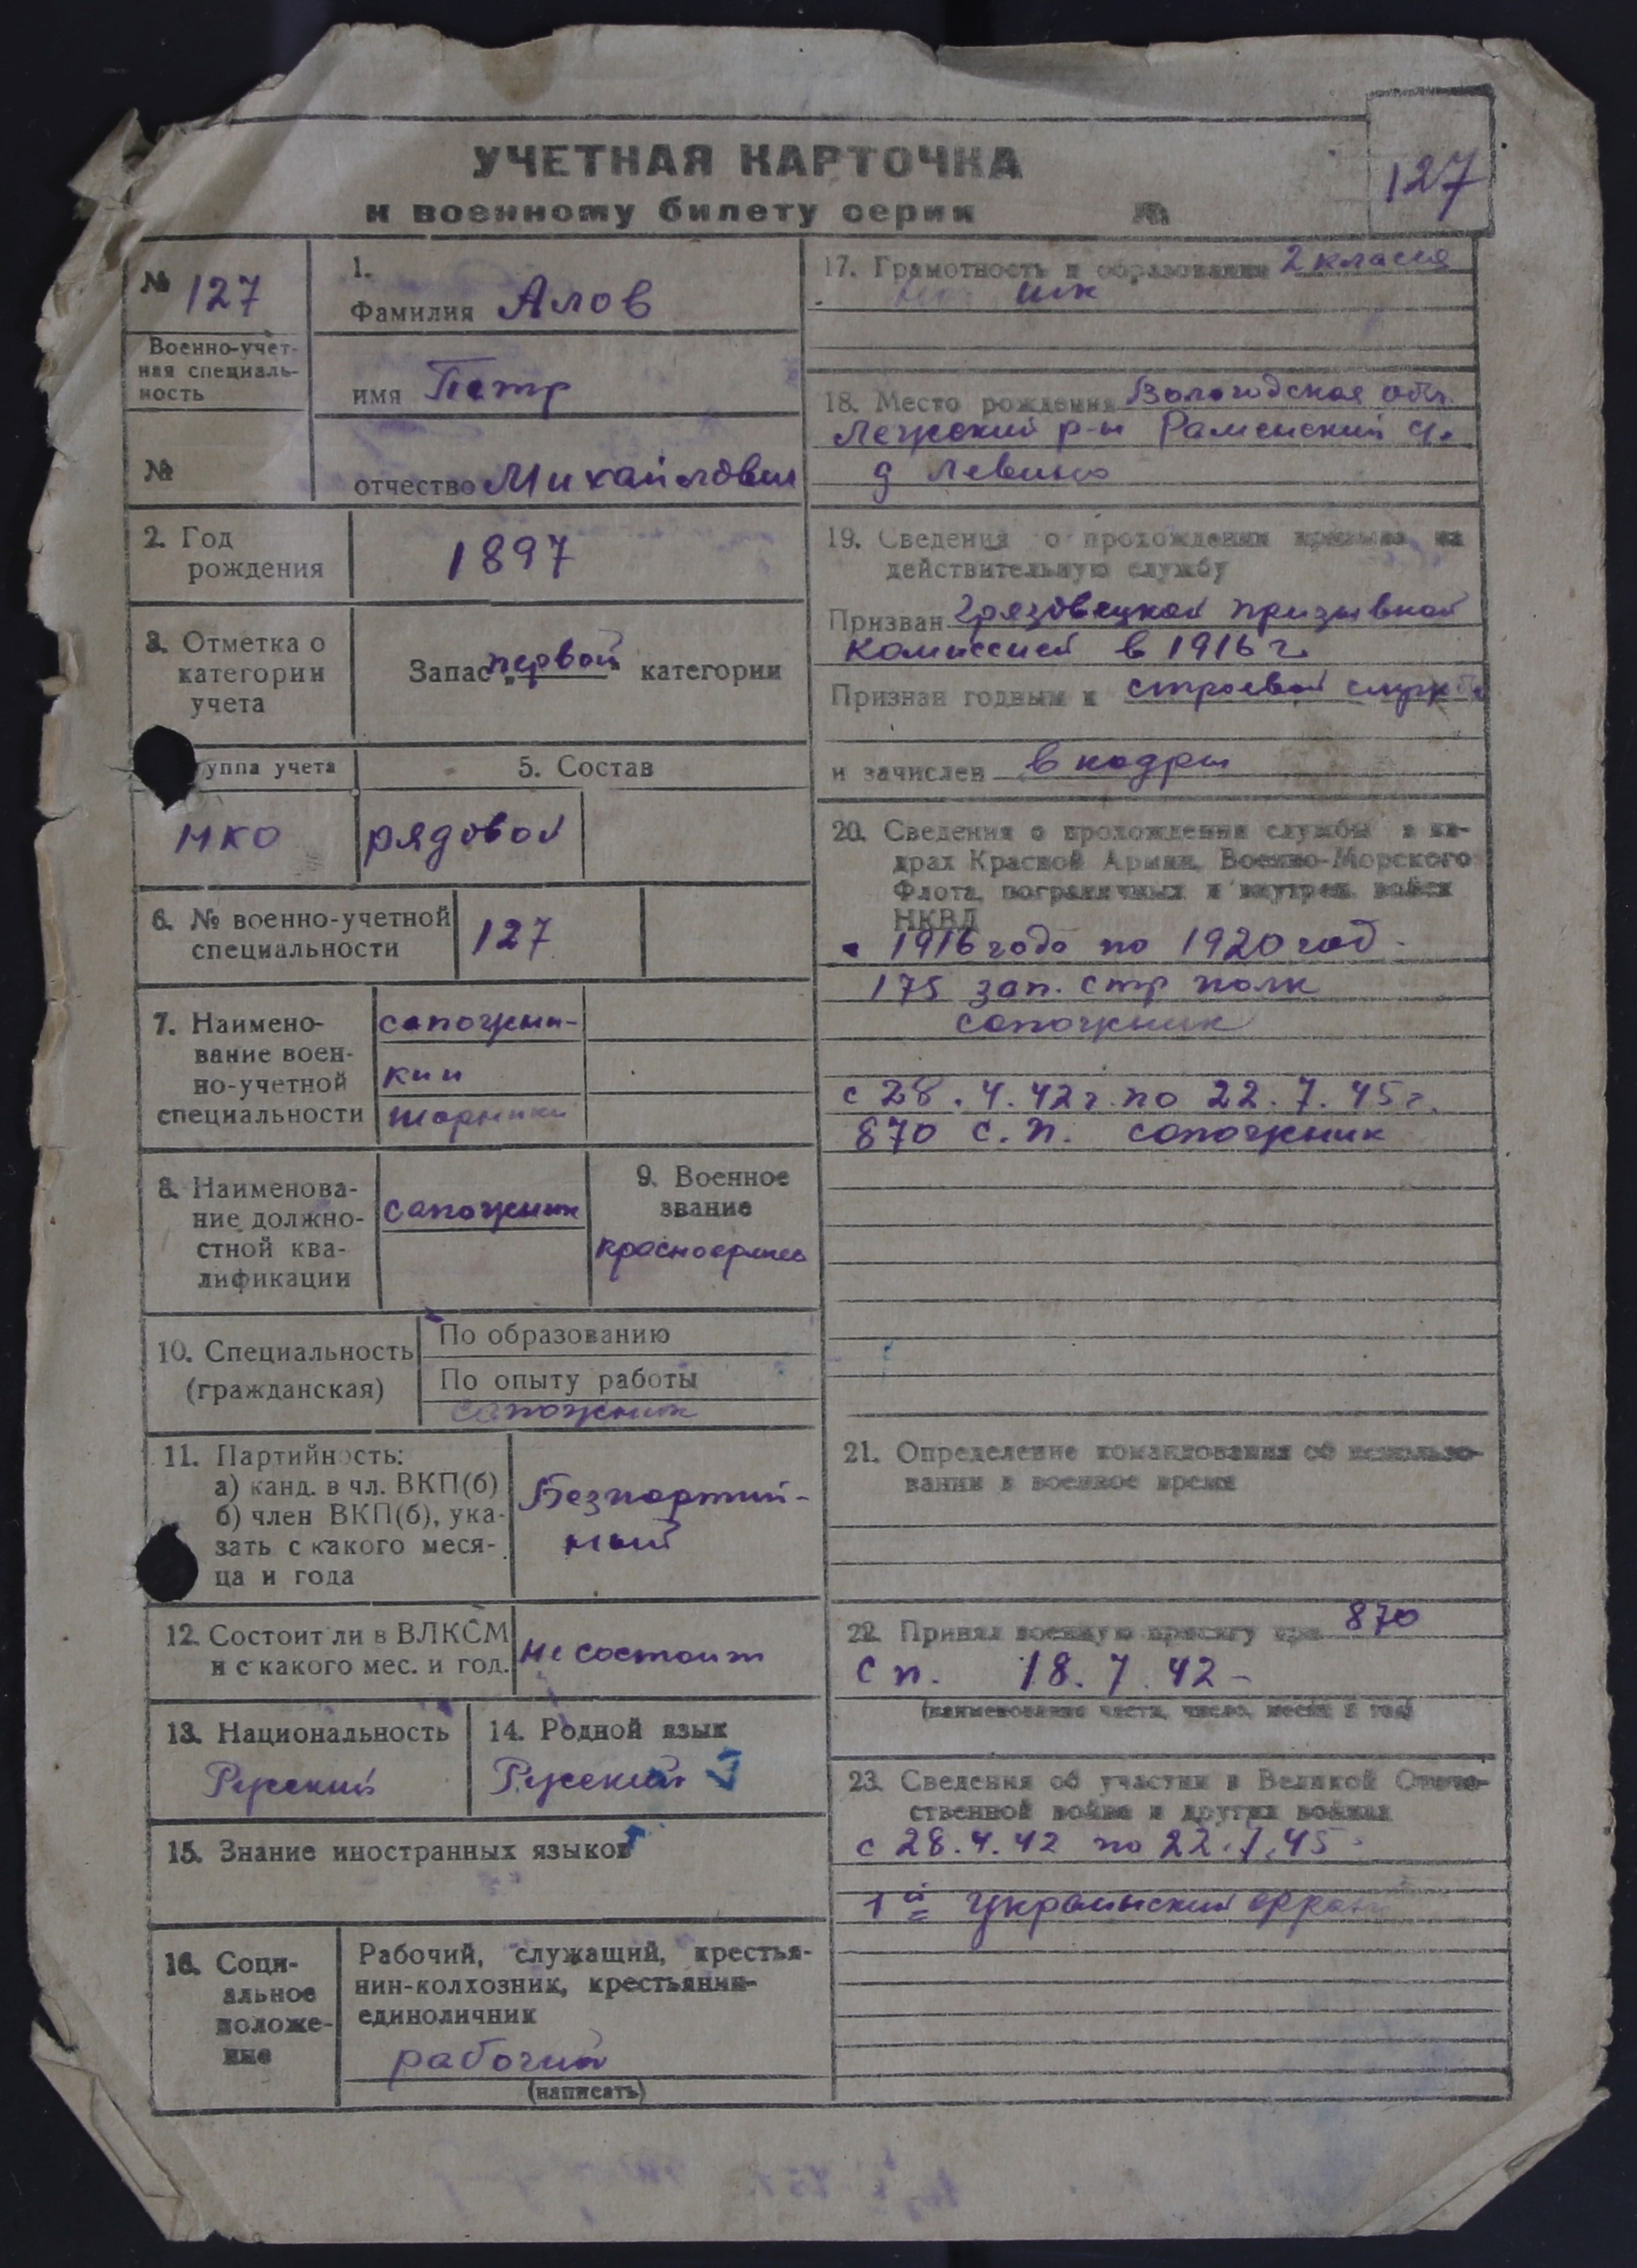 УЧЕТНАЯ КАРТОЧКА
к военному билету серии №
127
№ 127
Военно-учет-
ная специаль-
ность
№
1.
Фамилия Алов
имя Петр
отчество Михайлович
2. Год
рождения
1897
3. Отметка о
категории
учета
Запас „первой“ категории
уппа учета
НКО
5. Состав
рядовой
6. № военно-учетной
специальности
127
7. Наимено-
вание воен-
но-учетной
специальности
сапожни-
ки и
шорники
8. Наименова-
ние должно-
стной ква-
лификации
сапожник
9. Военное
звание
красноармеец
10. Специальность
(гражданская)
По образованию
По опыту работы
сапожник
11. Партийность:
а) канд. в чл. ВКП(б)
б) член ВКП(б), ука-
зать с какого меся-
ца и года
Безпартий-
ный
12. Состоит ли в ВЛКСМ
и с какого мес. и год.
не состоит
13. Национальность
Русский
14. Родной язык
Русский
15. Знание иностранных языков
16. Соци-
альное
положе-
ние
Рабочий, служащий, крестья-
нин-колхозник, крестьянин-
единоличник
рабочий
(написать)
17. Грамотность и образование 2 класса
шк
18. Место рождения Вологодская обл.
Лежский р-н Раменский
д Левино
19. Сведения о прохождении призыва на
действительную службу
Призван Грязовецкой призывной
комиссией в 1916 г.
Признан годным к строевой службе
и зачислен в кадры
20. Сведения о прохождении службы в ка-
драх Красной Армии, Военно-Морского
Флота, пограничных и внутрен. войск
НКВД
с 1916 года по 1920 год.
175 зап. стр полк
сапожник
с 28.4.42 г. по 22.7.45 г.
870 с.п. сапожник
21. Определение командования об использо-
вании в военное время
22. Принял военную присягу при 870
с п. 18.7.42 -
(наименование части, число, месяц и год)
23. Сведения об участии в Великой Отече-
ственной войне и других войнах
с 28.4.42 по 22.7.45
1й Украинский фронт